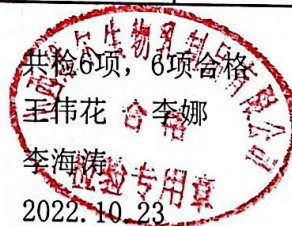 共检6项，6项合格
王伟花 李娜
李海涛
2022.10.23
生物乳制品有限公司
合格
检验专用章